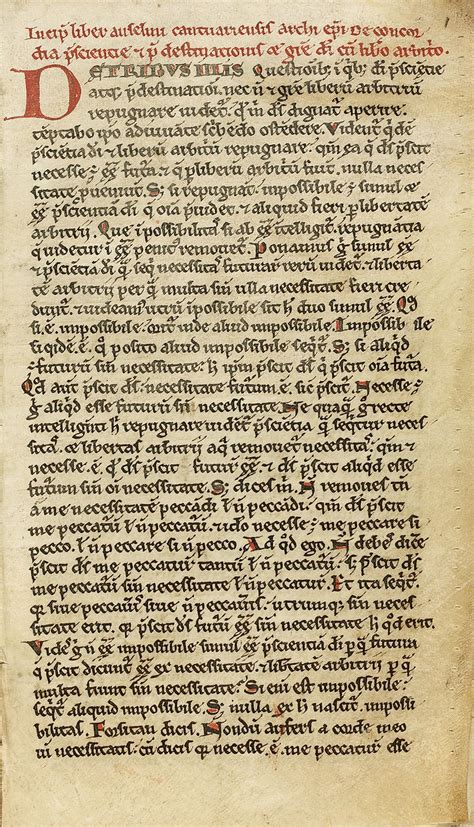 Incip̄ liber anselmi cantuariensis archi ep̄i De concor
dia p̄scientie & p̄destinationis & gr̄e dī cū libero arbitrio.
DE TRIBUS ILLIS Questionib; ī q̄b; dī p̄scietie
atq; p̄destinatiōi. nec ñ & gr̄e liberū arbitriū
repugnare uidet̄. q̄ m̄ dī dignat̄ aperire.
teptabo ipo adiuuāte ostēdere. Videnr̄ q̄dē
p̄scientia dī & liberū arbitriū repugnare. qm̄ ea q̄ dī p̄scit
necesse ÷ ēē futa. & q̄ p̄ liberū arbitriū fiut. nulla neces
sitate pueniut. S; si repugnat. impossibile ÷ simul &
ēē p̄scientiā dī q̄ oīa p̄uidet. & aliquid fieri p̄ libertatē
arbitrii. Que ī possibilitas si ab ēē itelligit̄. repugnātia
q̄ uidetur ī ēē penit̄ remouet̄. Ponamus ḡ simul ēē
& p̄scietiā dī q̄ seq̄ necessitas futurar̄ rerū uidet̄. & liberta
tē arbitrii per q̄ multa sin̄ ulla necessitate fieri cre
dunt̄. & uideam̄ utrū īpossibile sit h̄ duo simul ēē. Qd̄
si ē. impossibile. orit̄ inde aliud impossibile. Impossibile
siqidē ē. q̄ posito aliud impossibile seq̄t̄. S; si aliq̄d
÷ futurū sin̄ necessitate. h̄ ipm̄ p̄scit dī q̄ p̄scit oīa futa.
Qd̄ aut p̄scit dī. necessitate futurum ē. sic p̄scit̄. Necesse ÷
ḡ aliq̄d esse futurū sin̄ necessitate. Ne quaq̄ ḡ recte
intelligēti h̄ repugnare uidet̄ p̄scietia q̄ seq̄tur neces
sitas. & libertas arbitrii a q̄ remouet̄ necessitas. qm̄ &
necesse ē. q̄ dī p̄scit futur̄ ēē. & dī p̄scit aliq̄d esse
futurum sin̄ oī necessitate. S; dices m̄. N̄ remoues tū
a me necessitatē peccādi ł ñ peccādi. qm̄ dī p̄scit
me peccaturū ł ñ peccaturū. & ido necesse ÷ me peccare si
pecco. ł ñ peccare si ñ pecco. Ad qd̄ ego. N̄ debes dice
p̄scit dī me peccatur̄ tantū ł ñ peccaturū. s; p̄scit dī
me peccaturū sin̄ necessitate ł ñ peccatur̄. Et ita seq̄t̄.
q̄ siue peccauis. siue ñ peccauis. utrumq; sin̄ neces
sitate erit. q̄ p̄scit dī futur̄ ēē sin̄ necessitate h̄ qd̄ erit.
Vides ḡ ñ ēē impossibile simul ēē p̄scientiā dī p̄ q̄ futura
q̄ p̄scit dicunt̄ ēē ex necessitate. & libtatē arbitrii p̄ q̄
multa fiunt sin̄ necessitate. Si eni est impossibile.
seq̄t̄ aliquid impossibile. S; nulla ex h̄ nascit̄ impossi
bilitas. Forsitan dicis. Nondū aufers a corde meo
uī necessitatis. cū dicis q̄ necesse ē. me peccatur̄ esse